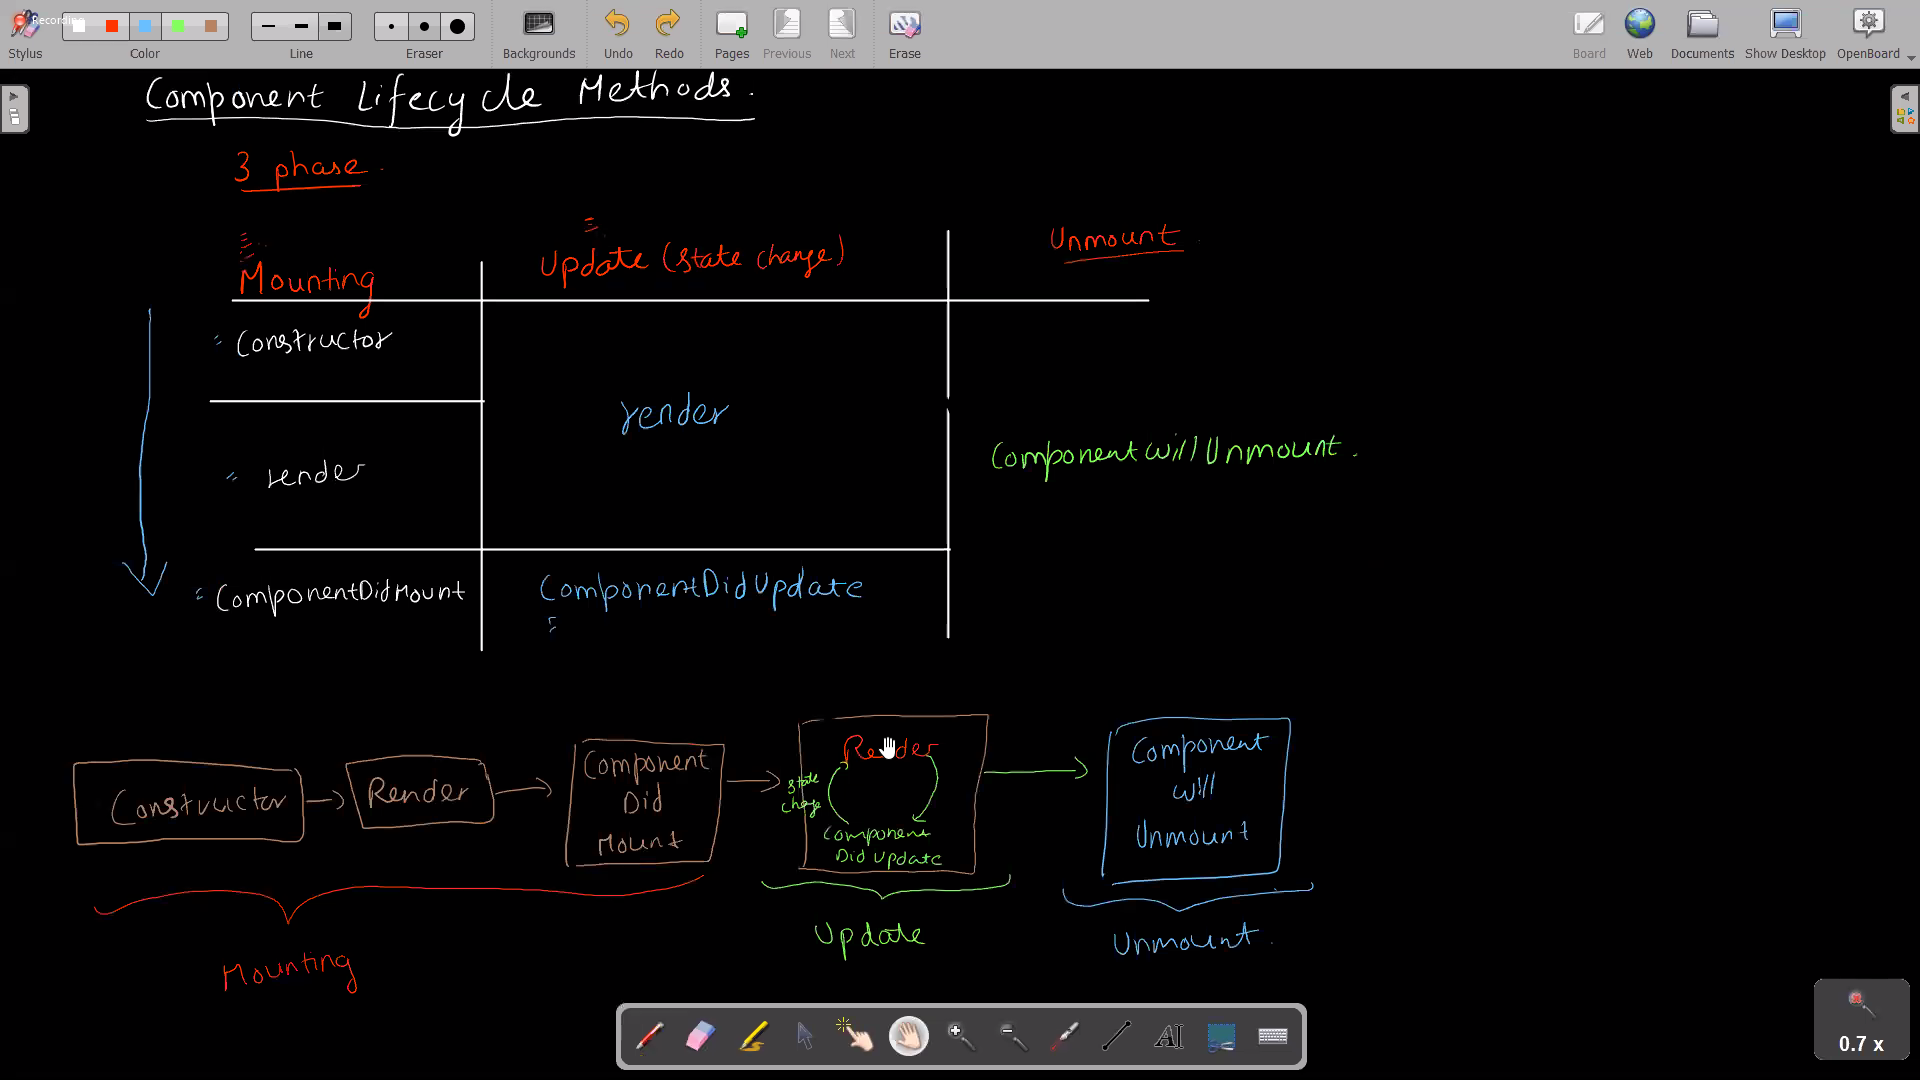 Recording
Stylus
Color
Line
Eraser
Backgrounds
Undo
Redo
Pages
Previous
Next
Erase
Board
Web
Documents
Show Desktop
OpenBoard
Component Lifecycle Methods.
3 phase.
Mounting
Update (state change)
Unmount
Constructor
render
render
ComponentWillUnmount.
ComponentDidMount
ComponentDidUpdate
Constructor
Render
Component
Did
Mount
Render
state
change
Component
Did Update
Component
Will
Unmount
Mounting
Update
Unmount.
0.7 x